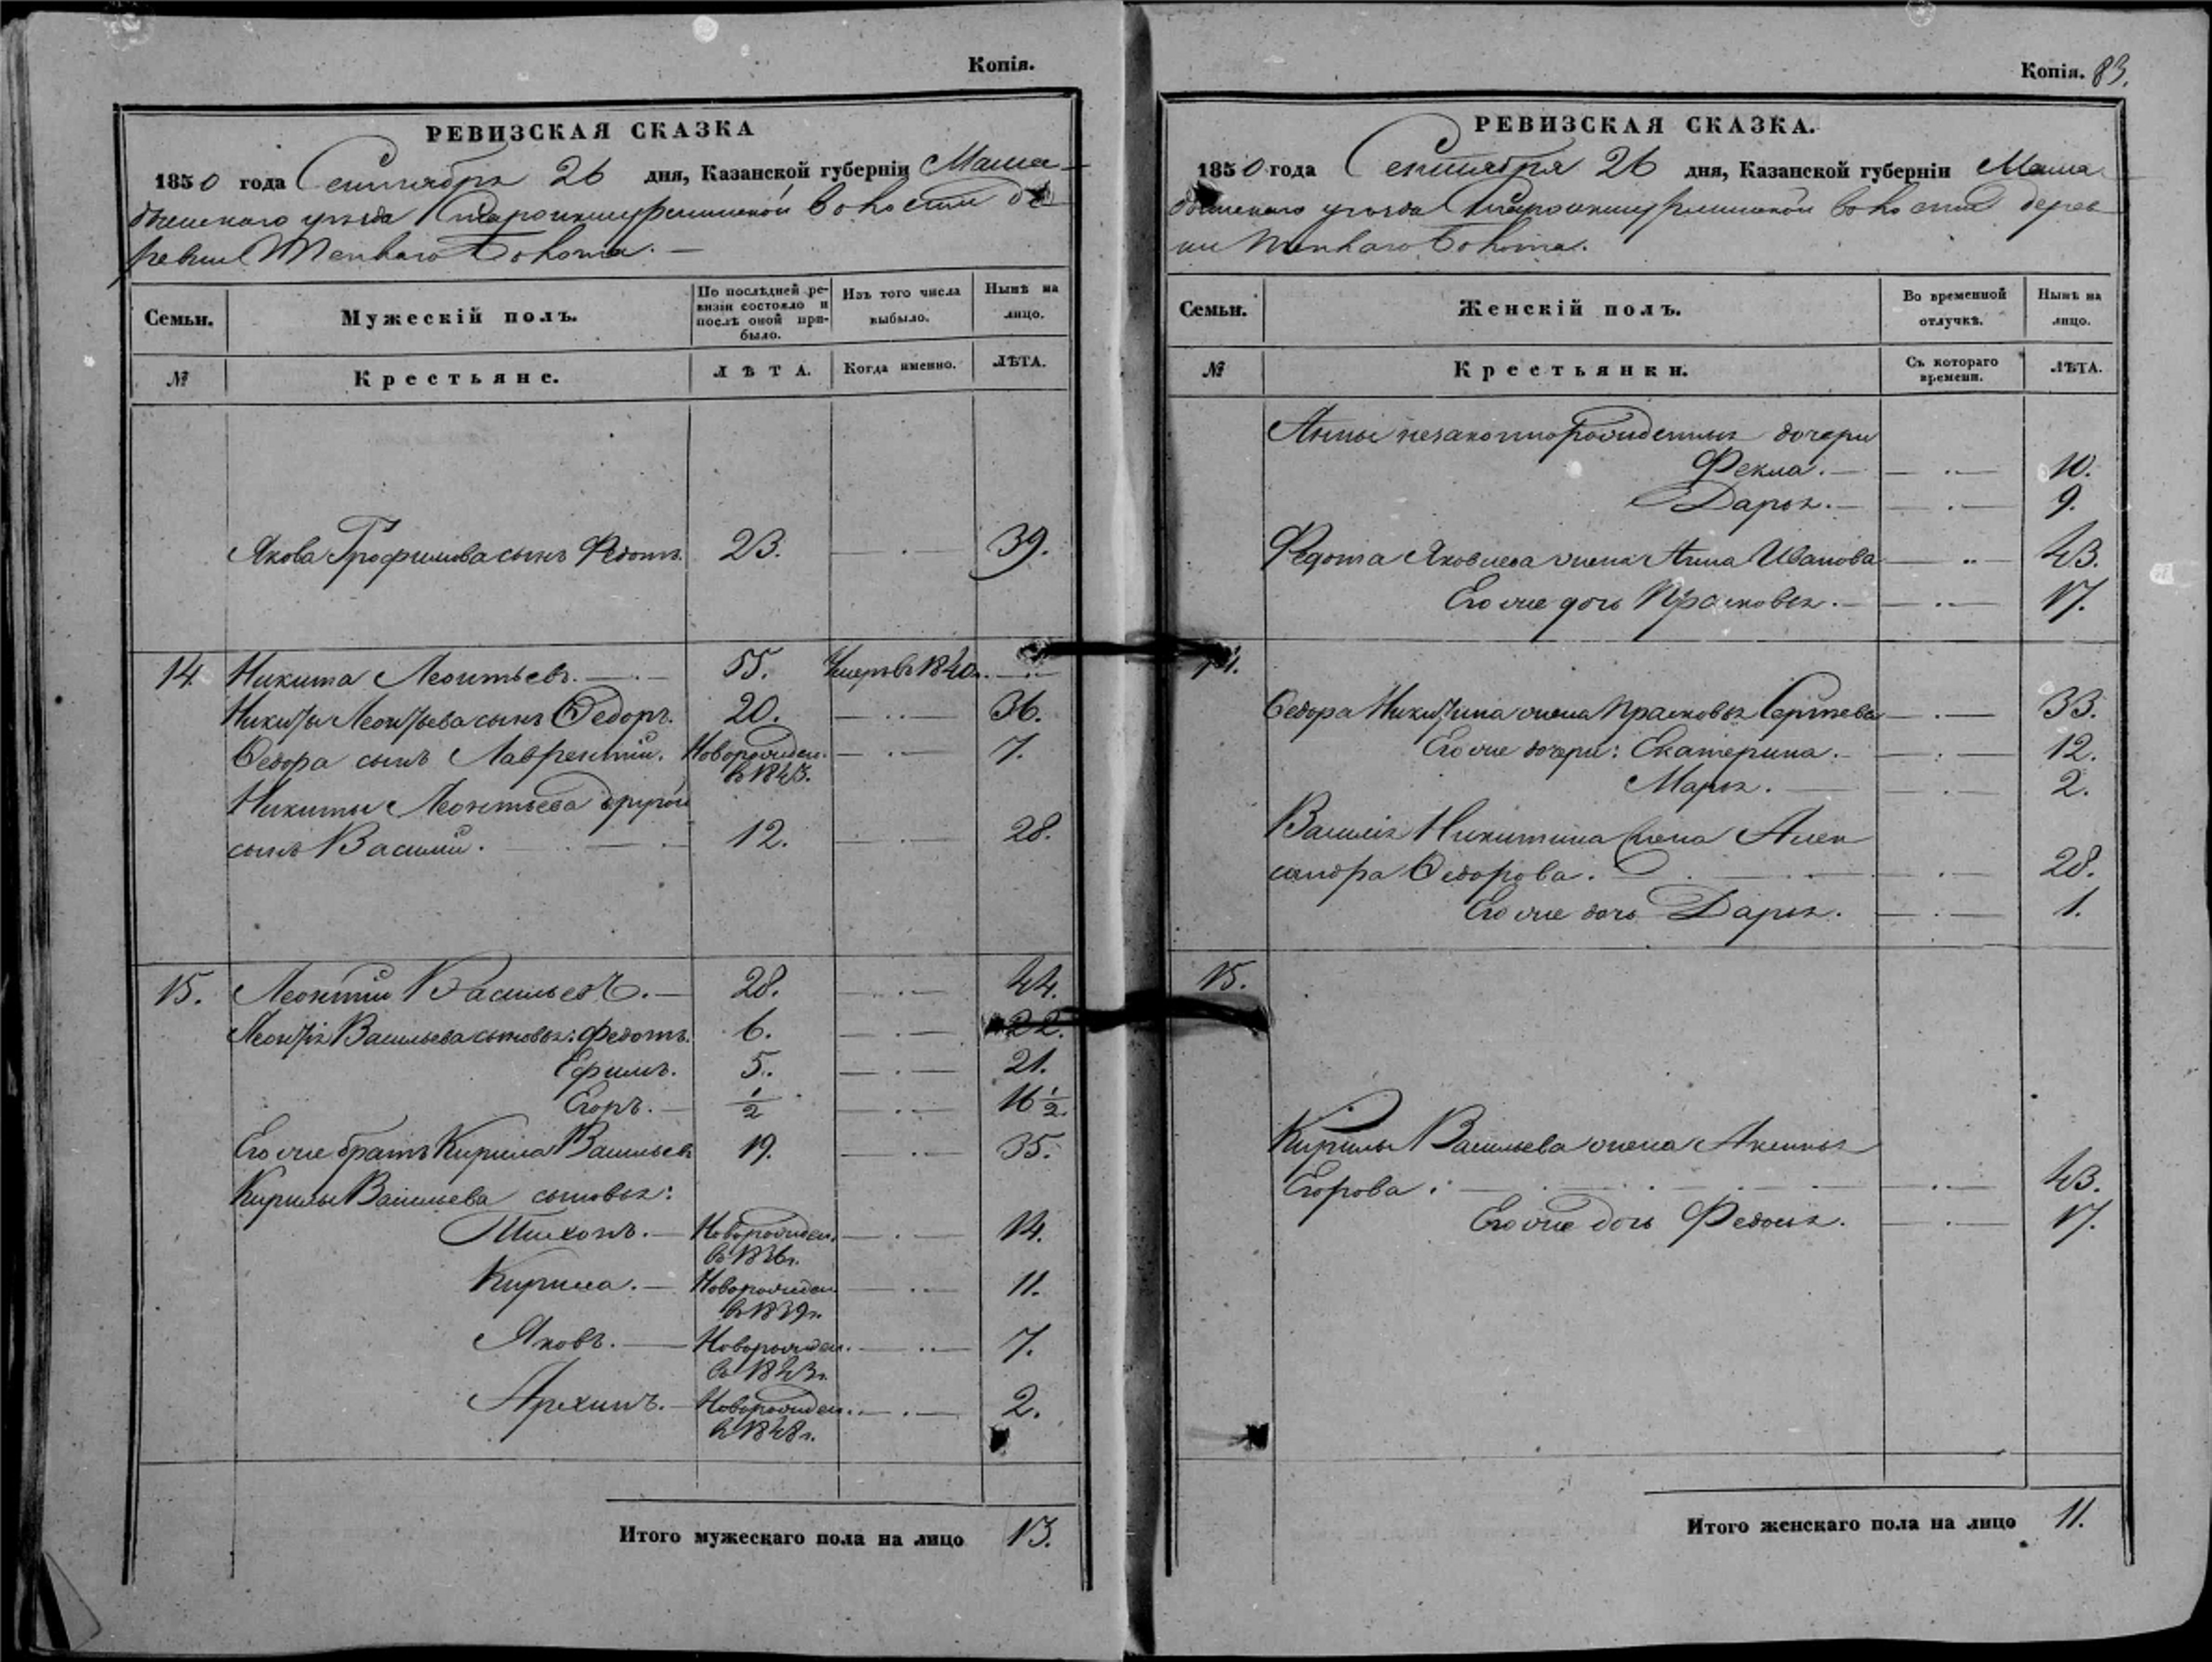 Копія.
РЕВИЗСКАЯ СКАЗКА
1850 года Сентября 26 дня, Казанской губерніи Мама-
дышскаго уѣзда волости де-
ревни
Семьи.
Мужескій полъ.
По послѣдней ре-
визіи состояло и
послѣ оной при-
было.
Изъ того числа
выбыло.
Нынѣ на
лицо.
№
Крестьяне.
ЛѢТА.
Когда именно.
ЛѢТА.
Якова Трофимова сынъ Федотъ. 23. 39.
14. Никита Леонтьевъ. 55. Умеръ въ 1840 г.
Никиты Леонтьева сынъ Ѳедоръ. 20. 36.
Ѳедора сынъ Лаврентій. Новорожден. 7.
въ 1843.
Никиты Леонтьева другой
сынъ Василій. 12. 28.
15. Леонтій Васильевъ. 28. 44.
Леонтія Васильева сыновья: Федотъ. 6. 22.
Ефимъ. 5. 21.
Егоръ. 1/2 16 1/2.
Его же братъ Кирила Васильевъ 19. 35.
Кирилы Васильева сыновья:
Тихонъ. Новорожден. 14.
въ 1836 г.
Кирила. Новорожден. 11.
въ 1839 г.
Яковъ. Новорожден. 7.
въ 1843 г.
Новорожден. 2.
въ 1848 г.
Итого мужескаго пола на лицо 13.
Копія. 83.
РЕВИЗСКАЯ СКАЗКА.
1850 года Сентября 26 дня, Казанской губерніи Мама-
дышскаго уѣзда волости дерев-
ни
Семьи.
Женскій полъ.
Во временной
отлучкѣ.
Нынѣ на
лицо.
№
Крестьянки.
Съ котораго
времени.
ЛѢТА.
Анны незаконнорожденныя дочери
Фекла. 10.
Дарья. 9.
Федота Яковлева жена Анна Иванова 43.
Его же дочь Прасковья. 17.
14.
Ѳедора Никитина жена Прасковья Сергѣева 33.
Его же дочери: Екатерина. 12.
Марья. 2.
Василія Никитина жена Алек
сандра Ѳедорова. 28.
Его же дочь Дарья. 1.
15.
Кирилы Васильева жена Аксинья
Егорова. 43.
Его же дочь Федосья. 17.
Итого женскаго пола на лицо 11.